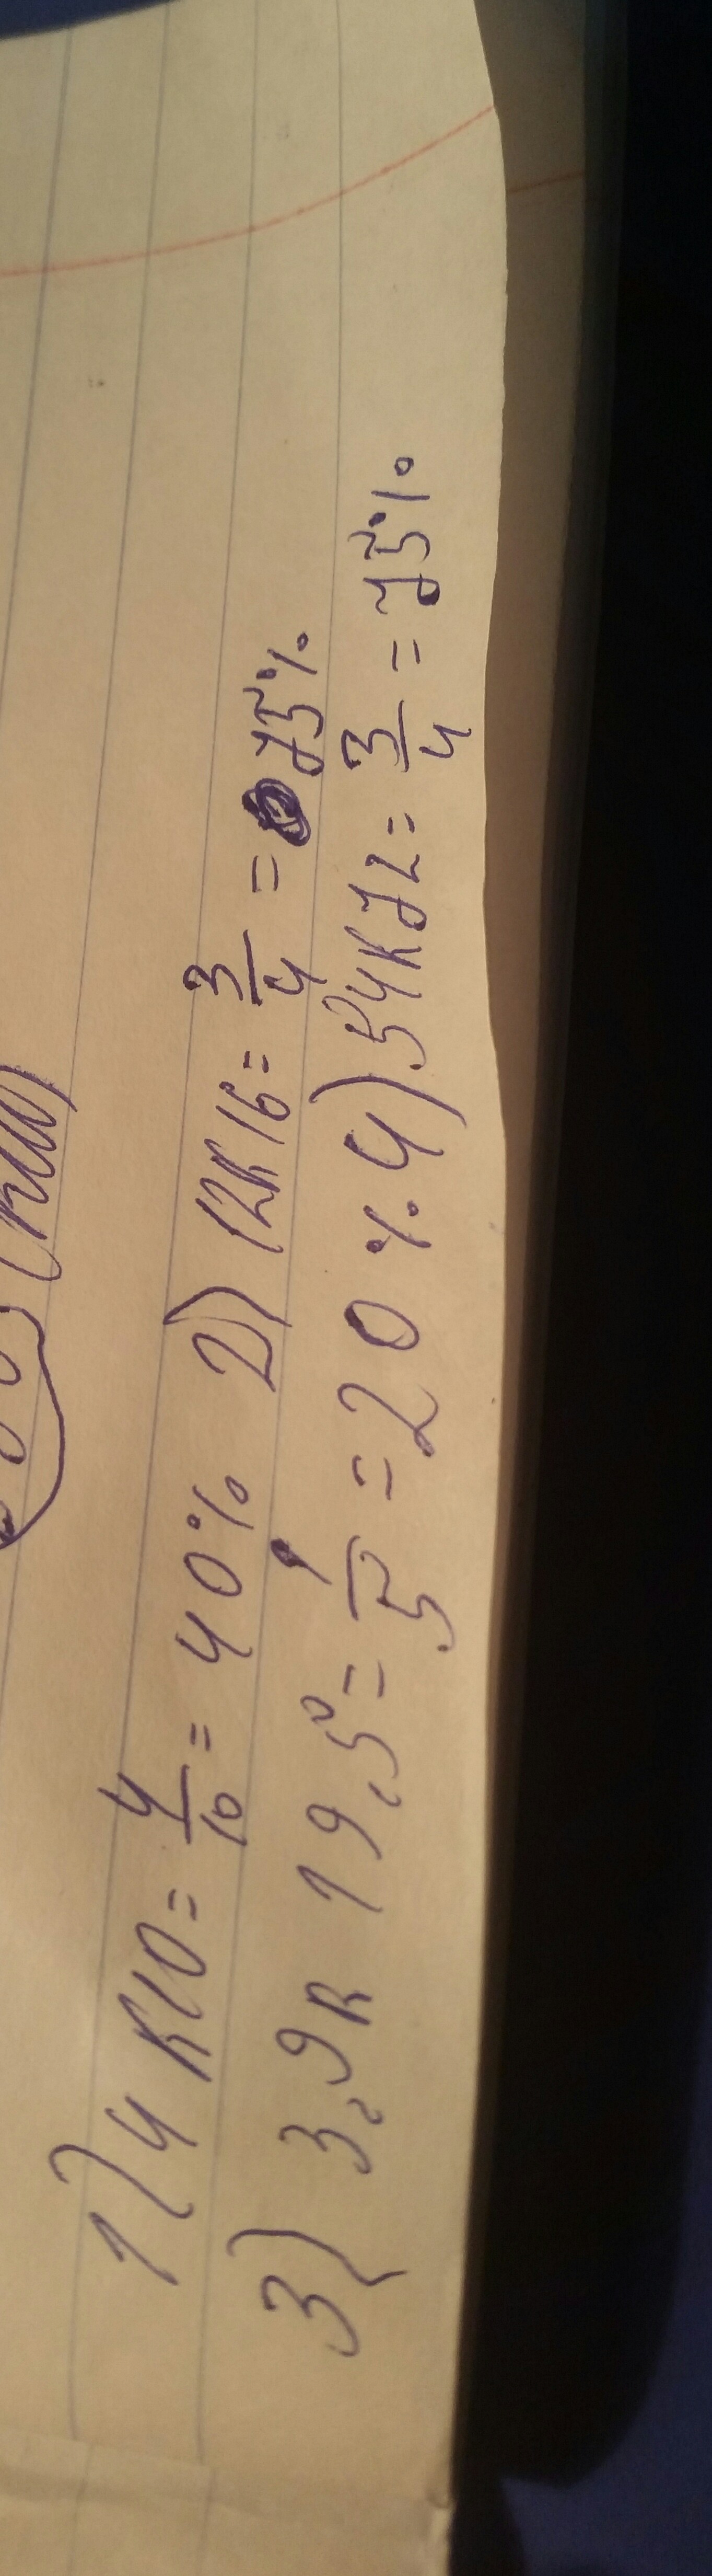 1) 4 к 10 = 4/10 = 40% 2) 12 к 16 = 3/4 = 75%
3) 3,9 к 19,5 = 1/5 = 20% 4) 54 к 72 = 3/4 = 75%